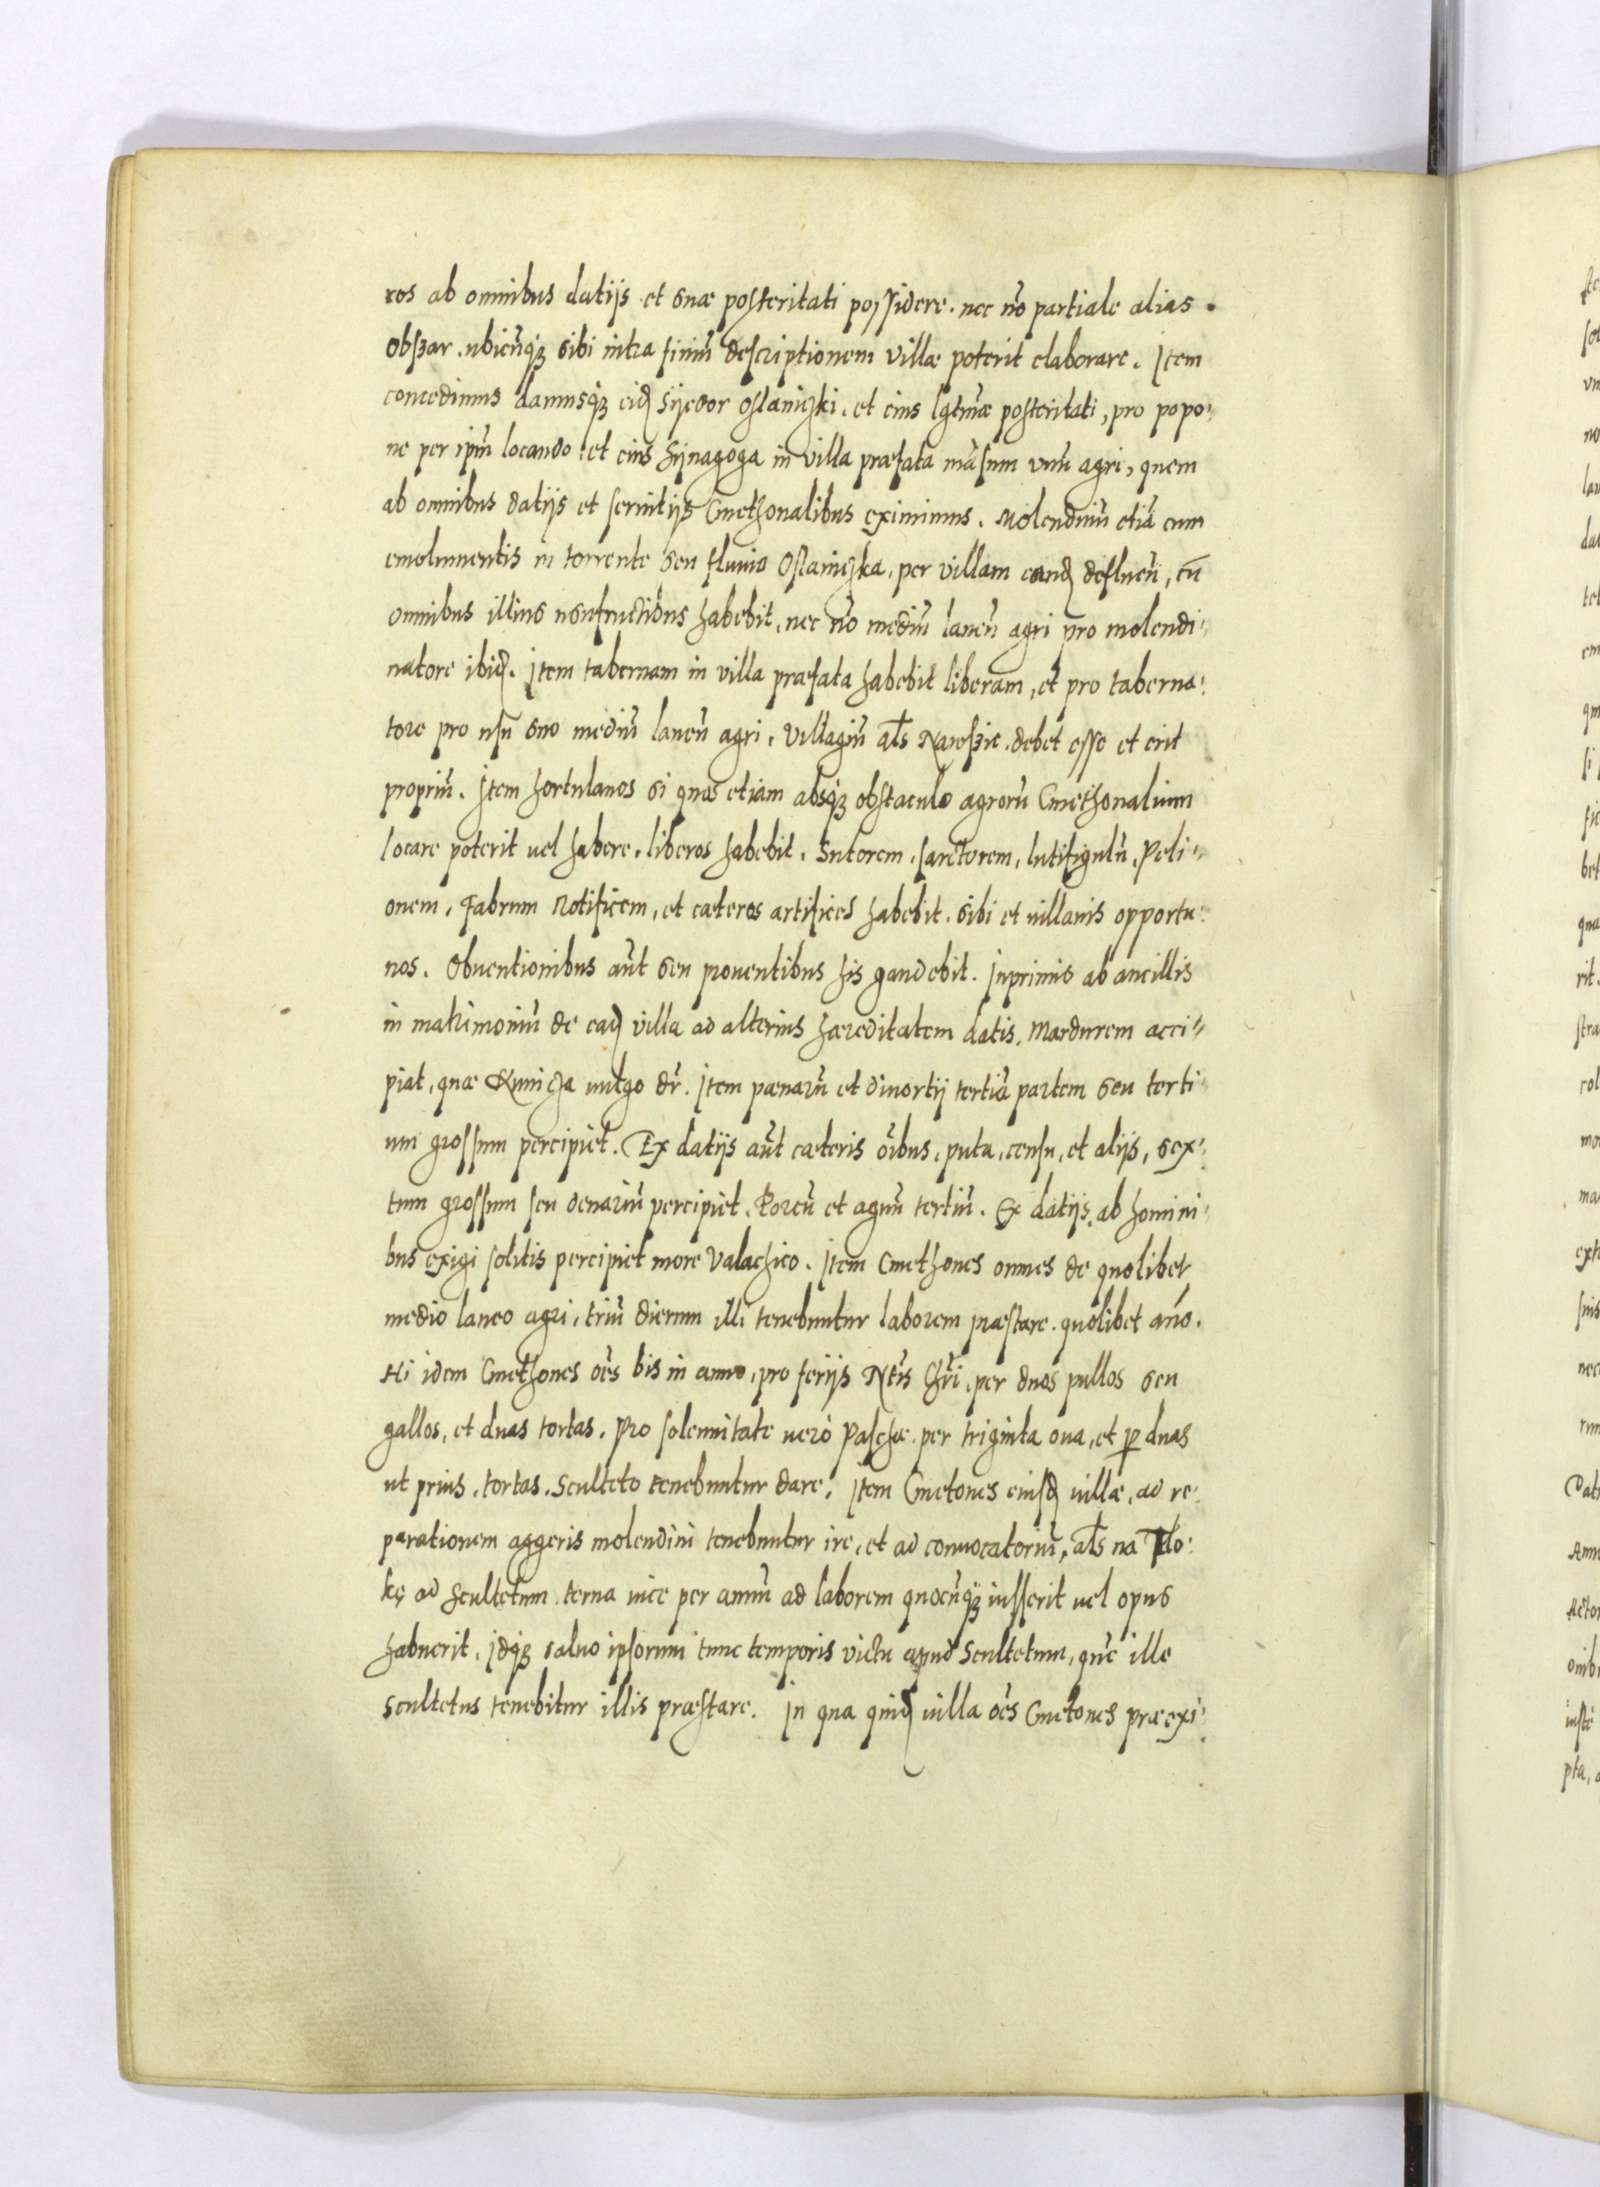 ros ab omnibus datijs et suæ posteritati possidere. nec nõ partiale alias.
Obszar. ubicũq3 sibi intra finiũ descriptionem villæ poterit elaborare. Item
concedimus damusq3 eid Syedor Oslawiczki, et eius lgtmæ posteritati, pro popo:
ne per ipm̃ locando et eius synagoga in villa præfata mãsum vnũ agri, quem
ab omnibus datijs et seruitijs Cmethonalibus eximimus. Molendinũ etiã cum
emolumentis in torrente seu fluuio Oslawiczka, per villam eand defluen̄, cũ
omnibus illius usufructibus habebit, nec nõ mediũ laneũ agri pro molendi:
natore ibid. Item tabernam in villa præfata habebit liberam, et pro taberna:
tore pro usũ suo mediũ laneũ agri, Villagiũ als̃ Nawszie. debet esse et erit
propriũ. Item hortulanos si quos etiam absq3 obstaculo agrorũ Cmethonalium
locare poterit uel habere, liberos habebit. Sutorem, sarctorem, lutifigulũ, Peli:
onem, Fabrum Rotificem, et cæteros artifices habebit. sibi et uillanis opportu:
nos. Obuentionibus aũt seu prouentibus his gaudebit. Inprimis ab ancillis
in matrimoniũ de ead villa ad alterius hæreditatem datis, Mardurem acci:
piat, quæ Kunicza uulgo dr̃. Item pænarũ et diuortij tertiã partem seu terti
um grossum percipiet. Ex datijs aũt cæteris oĩbus, puta, censu, et alijs, sex:
tum grossum seu denariũ percipiet. Porcũ et agnũ tertiũ. Ex datijs ab homini
bus exigi solitis percipiet more Valachico. Item Cmethones omnes de quolibet
medio laneo agri, triũ dierum illi tenebuntur laborem præstare. quolibet año.
Hi idem Cmethones oẽs bis in anno, pro ferijs Ntĩs Chr̃i, per duos pullos seu
gallos, et duas tortas. Pro solennitate uerò Paschæ. per triginta oua, et p duas
ut prius, tortas. Sculteto tenebuntur dare. Item Cmetones eiusd uillæ, ad re:
parationem aggeris molendini tenebuntur ire, et ad conuocatoriũ, als̃ na Tlo:
kę ad scultetum terna uice per annũ ad laborem quocũq3 iusserit uel opus
habuerit. Idq3 saluo ipsorum tunc temporis victu apud Scultetum, quẽ ille
Scultetus tenebitur illis præstare. In qua quid uilla oẽs Cmetones præexi: